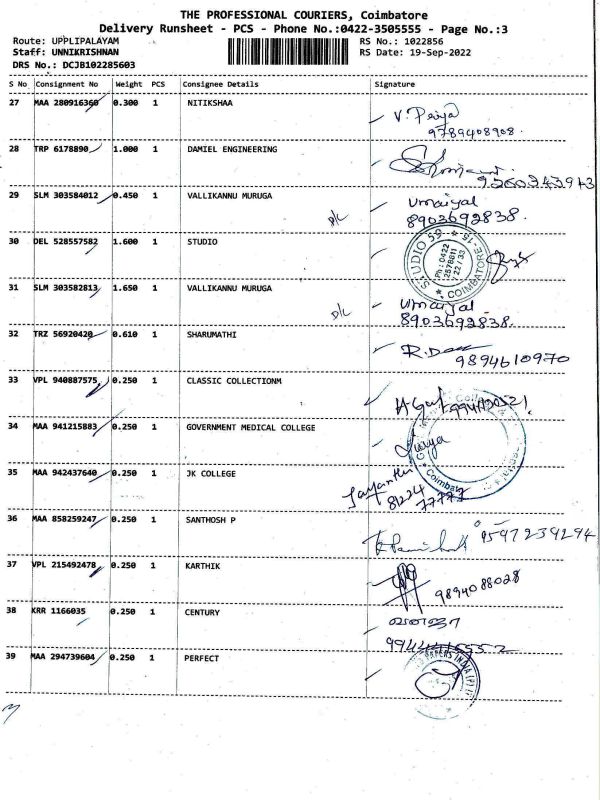 THE PROFESSIONAL COURIERS, Coimbatore
Delivery Runsheet - PCS - Phone No.:0422-3505555 - Page No.:3
Route: UPPLIPALAYAM RS No.: 1022856
Staff: UNNIKRISHNAN RS Date: 19-Sep-2022
DRS No.: DCJB102285603
S No Consignment No Weight PCS Consignee Details Signature
27 MAA 280916360 0.300 1 NITIKSHAA
V. Priya
9789408908.
28 TRP 6178890 1.000 1 DAMIEL ENGINEERING
9360343943
29 SLM 303584012 0.450 1 VALLIKANNU MURUGA
Umaiyal
8903692838.
30 DEL 528557582 1.600 1 STUDIO
STUDIO 59
COIMBATORE-15
Ph : 0422
31 SLM 303582813 1.650 1 VALLIKANNU MURUGA
Umaiyal
8903692838.
32 TRZ 56920420 0.610 1 SHARUMATHI
9894610970
33 VPL 940887575 0.250 1 CLASSIC COLLECTIONM
34 MAA 941215883 0.250 1 GOVERNMENT MEDICAL COLLEGE
35 MAA 942437640 0.250 1 JK COLLEGE
Jayanthi
81224
77777
36 MAA 858259247 0.250 1 SANTHOSH P
9597239294
37 VPL 215492478 0.250 1 KARTHIK
9894088028
38 KRR 1166035 0.250 1 CENTURY
39 MAA 294739604 0.250 1 PERFECT